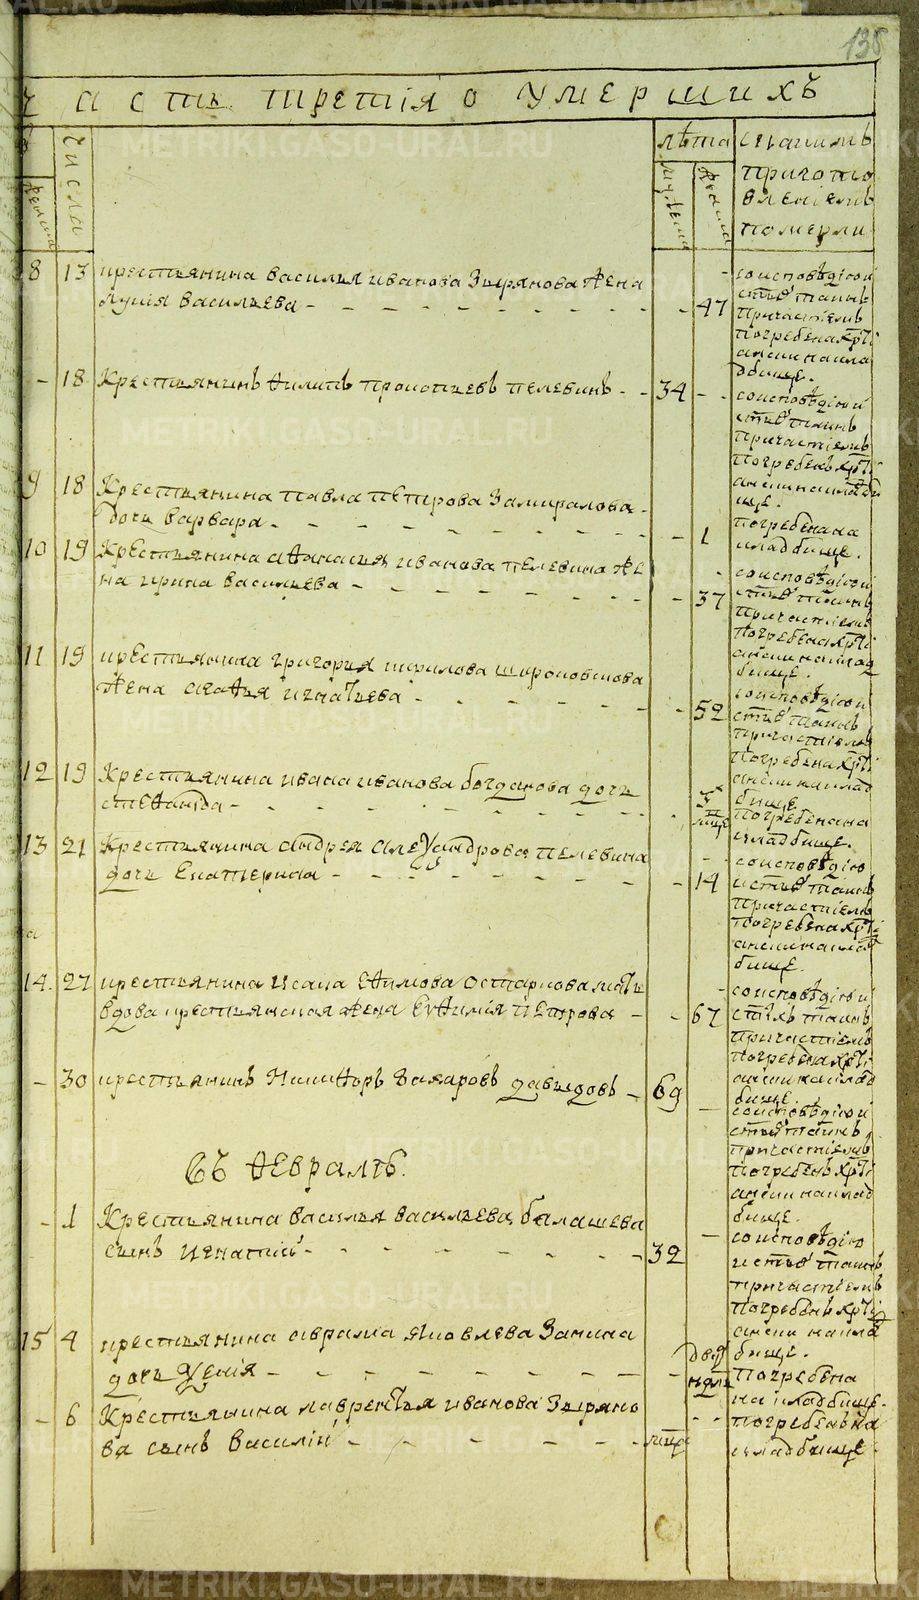 135
часть третія о умершихъ
числа
лѣта
женска
мужеска
женска
съ каким
приготовлениемъ
померли
8 13 крестьянина василья иванова Зырянова жена
лукія васильева - 47
соисповѣдiю и
с͠тыхъ таинъ
Причастиемъ
погребена хр͠ті
ански на кла
дбище.
- 18 Крестьянинъ филипъ прокопьевъ пелевинъ - 34
соисповѣдiю и
с͠тыхъ таинъ
причастиемъ
погребенъ хр͠ті
ански на кладби
ще.
9 18 Крестьянина павла петрова Замиралова
дочь варвара - 1
погребена на
кладбище.
10 19 Крестьянина афанасья иванова пелевина же
на ирина васильева - 37
соисповѣдiю и
с͠тыхъ таинъ
причастиемъ
погребена хр͠ті
ански на клад
бище.
11 19 крестьянина григорья широковскова
жена агафья игнатьева - 52
соисповѣдiю и
с͠тыхъ таинъ
причастиемъ
погребена хр͠ті
ански на клад
бище
12 19 Крестьянина ивана иванова богданова дочь
стефанида -
м͠ца
Погребена на
кладбище.
13 21 Крестьянина андрея алеѯандрова пелевина
дочь Екатерина - 14
соисповѣдiю
и с͠тыхъ таинъ
причастиемъ
погребена хр͠ті
ански на клад
бище.
14. 27 крестьянина исака ефимова остаркова мать
вдова крестьянская жена Евфимія петрова - 67
соисповѣдiю и
с͠тыхъ таинъ
причастиемъ
погребена хр͠ті
ански на клад
бище.
- 30 крестьянинъ Никифоръ Захаровъ давыдовъ - 69
соисповѣдiю и
с͠тыхъ таинъ
причастиемъ
погребенъ хр͠ті
ански на клад
бище.
Въ феврале.
- 1 Крестьянина василья васильева балашева
сынъ игнатій - 32
соисповѣдiю
и с͠тыхъ таинъ
причастиемъ
погребенъ хр͠ті
ански на кла
бище.
15 4 крестьянина аврама яковлева Занина
дочь ѯенія - двухъ
н͠дль
погребена
на кладбище.
- 6 Крестьянина лаврентья иванова Зыряно
ва сынъ василій - м͠ца
погребенъ на
кладбище
METRIKI.GASO-URAL.RU